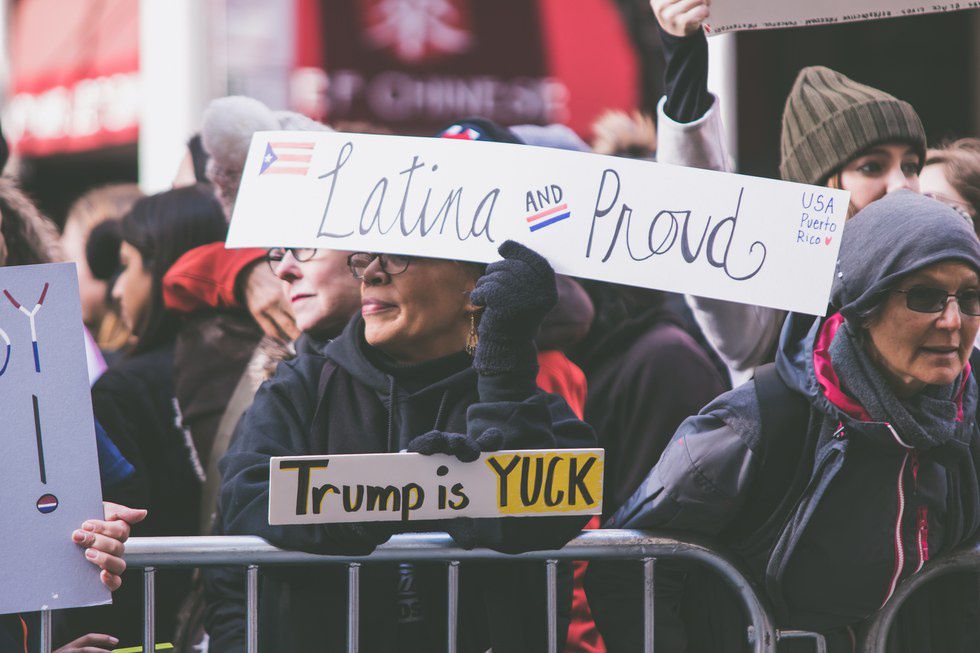 CHINESE
Latina AND Proud
USA
Puerto
Rico ♥
Y!
Trump is YUCK